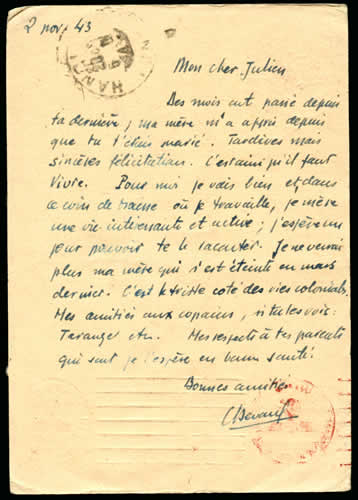 2 nov. 43
HANOI
Mon cher Julien
Des mois ont passé depuis
ta dernière; ma mère m'a appris depuis
que tu t'étais marié. Tardives mais
sincères félicitations. C'est ainsi qu'il faut
vivre. Pour moi je vais bien et dans
le coin de brousse où je travaille, je mène
une vie intéressante et active; j'espère un
jour pouvoir te la raconter. Je ne verrai
plus ma mère qui s'est éteinte en mars
dernier. C'est le triste côté des vies coloniales.
Mes amitiés aux copains, si tu les vois:
Mes respects à tes parents
qui sont je l'espère en bonne santé.
Bonnes amitiés